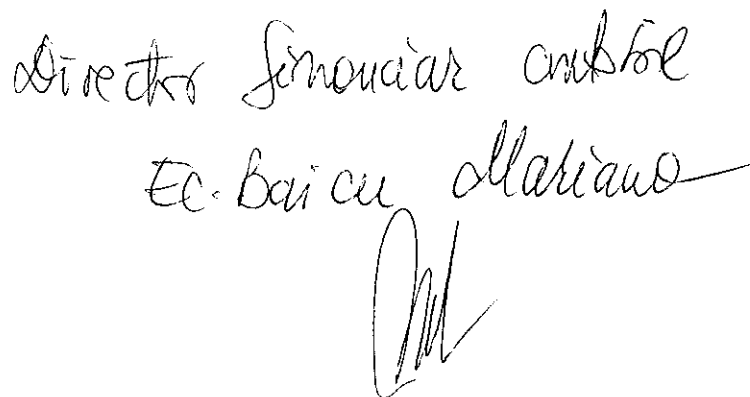 Director financiar contabil
Ec. Baicu Mariana